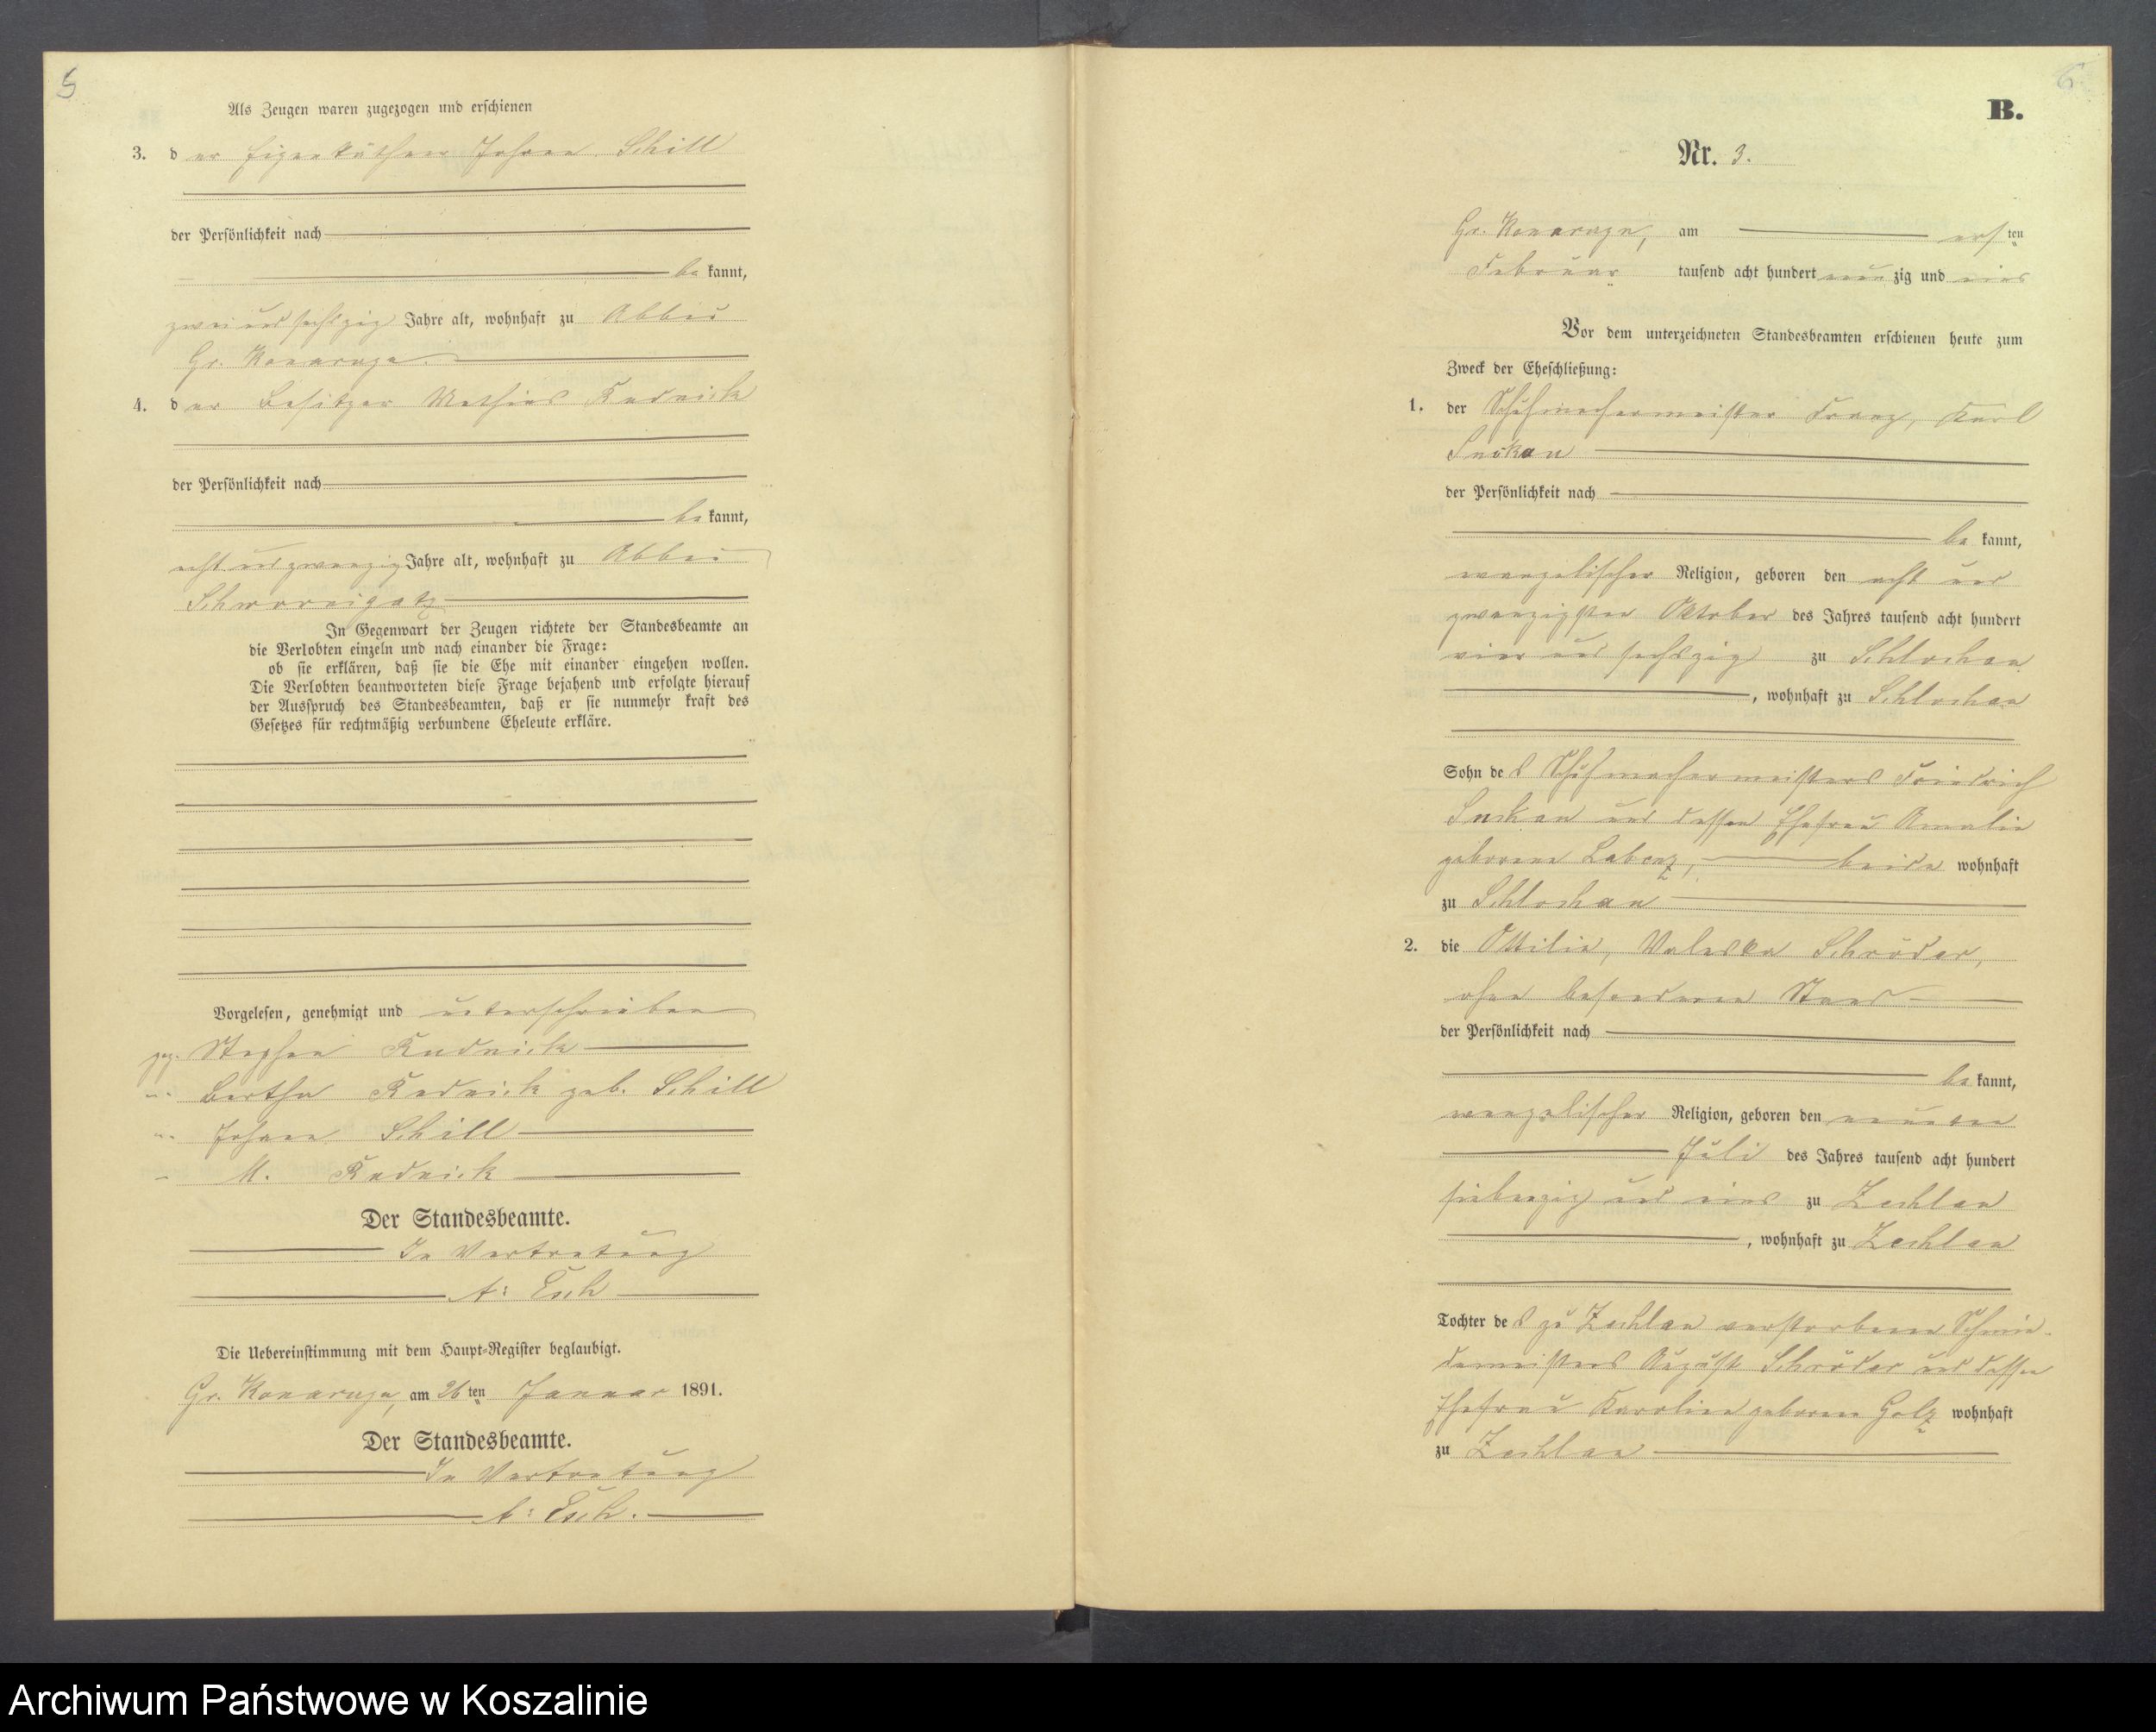 5
Als Zeugen waren zugezogen und erschienen
3. der Eigenkäthner Johann Schill
der Persönlichkeit nach
be kannt,
zwei und sechszig Jahre alt, wohnhaft zu Abbau
Gr. Konarczyn.
4. der Besitzer Mathias Rudnick
der Persönlichkeit nach
be kannt,
acht und zwanzig Jahre alt, wohnhaft zu Abbau
Schwornigatz
In Gegenwart der Zeugen richtete der Standesbeamte an
die Verlobten einzeln und nach einander die Frage:
ob sie erklären, daß sie die Ehe mit einander eingehen wollen.
Die Verlobten beantworteten diese Frage bejahend und erfolgte hierauf
der Ausspruch des Standesbeamten, daß er sie nunmehr kraft des
Gesetzes für rechtmäßig verbundene Eheleute erkläre.
Vorgelesen, genehmigt und unterschrieben
gez. Stephan Rudnick
Bertha Rudnick geb. Schill
Johann Schill
M. Rudnick
Der Standesbeamte.
In Vertretung
Die Uebereinstimmung mit dem Haupt-Register beglaubigt.
am 26ten Januar 1891.
Der Standesbeamte.
In Vertretung
6
B.
Nr. 3.
am ersten
Februar tausend acht hundert neunzig und eins
Vor dem unterzeichneten Standesbeamten erschienen heute zum
Zweck der Eheschließung:
1. der Schuhmachermeister Franz, Karl
der Persönlichkeit nach
be kannt,
evangelischer Religion, geboren den acht und
zwanzigsten Oktober des Jahres tausend acht hundert
vier und sechszig zu Schlochau
, wohnhaft zu Schlochau
Sohn des Schuhmachermeisters Friedrich
und dessen Ehefrau Amalie
geborene Labenz, beide wohnhaft
zu Schlochau
2. die Ottilie, Valeska Schröder,
ohne besonderen Stand
der Persönlichkeit nach
be kannt,
evangelischer Religion, geboren den neunten
Juli des Jahres tausend acht hundert
siebenzig und eins zu Zechlau
, wohnhaft zu Zechlau
Tochter des zu Zechlau verstorbenen Schmie-
demeisters August Schröder und dessen
Ehefrau Karoline geborene Golz wohnhaft
zu Zechlau
Archiwum Państwowe w Koszalinie